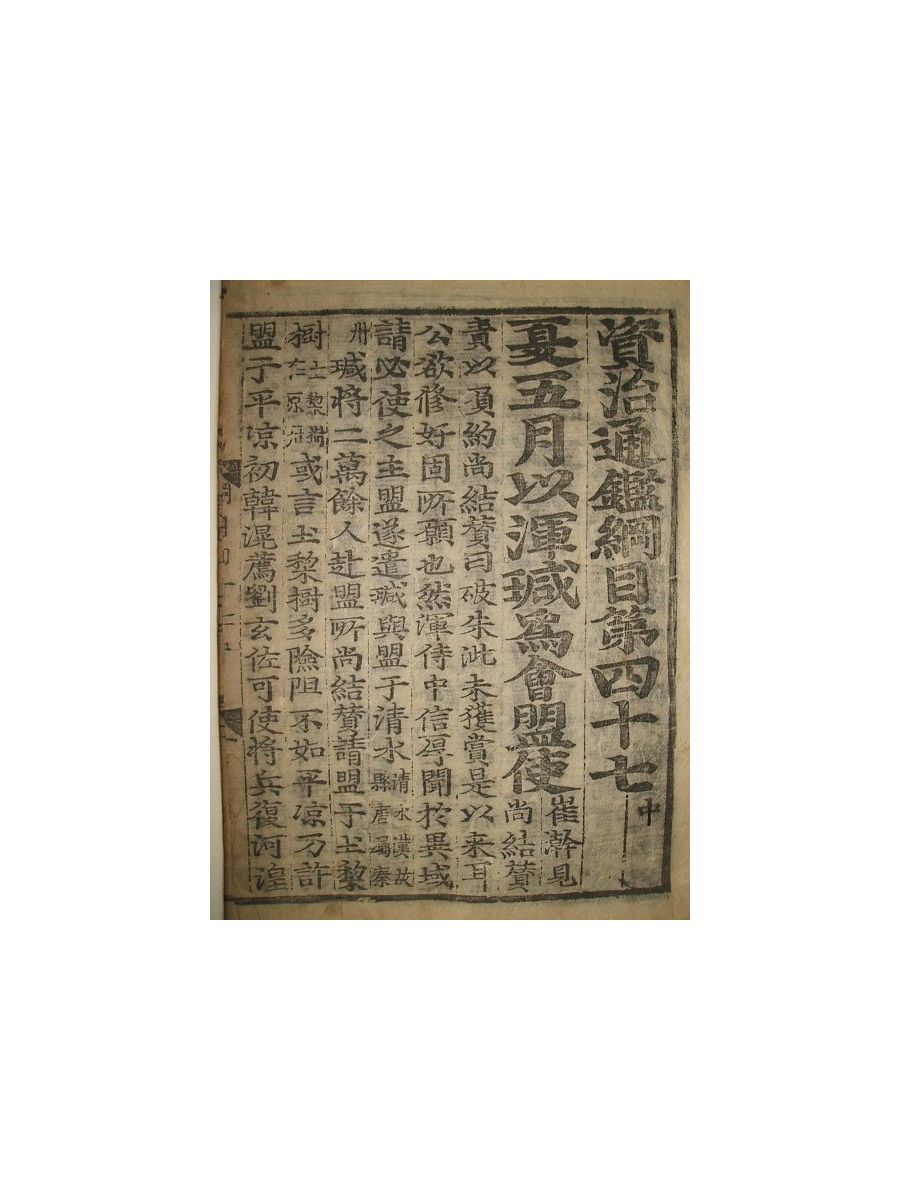 資治通鑑綱目第四十七 中
夏五月以渾瑊爲會盟使 崔澣見尚結贊
責以負約尚結贊曰破朱泚未獲賞是以来耳
公欲修好固所願也然渾侍中信厚聞於異域
請必使之主盟遂遣瑊與盟于清水 清水漢故縣唐屬秦
州 瑊将二萬餘人赴盟所尚結贊請盟于土黎
樹 土黎樹在原州 或言土黎樹多險阻不如平凉乃許
盟于平凉初韓滉薦劉玄佐可使将兵復河湟